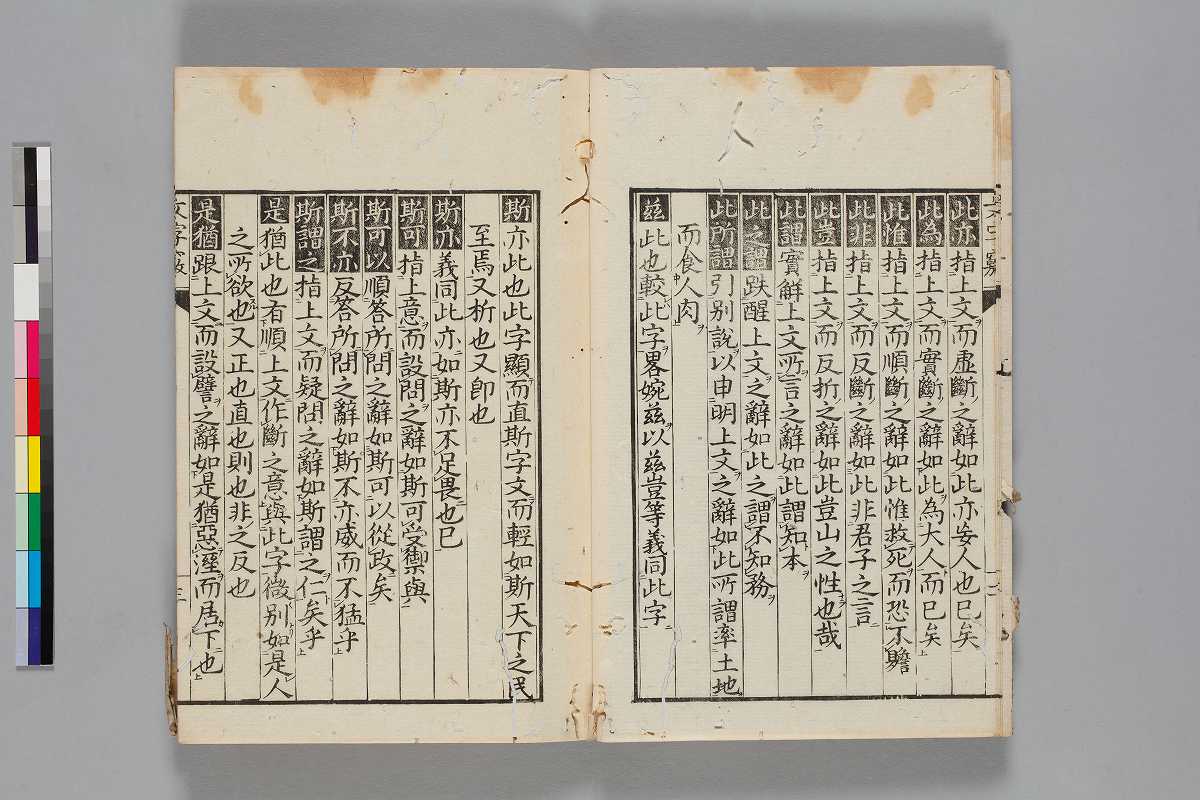 此亦指上文而虛斷之辭如此亦妄人也已矣
此為指上文而實斷之辭如此為大人而已矣
此惟指上文而順斷之辭如此惟救死而恐不贍
此非指上文而反斷之辭如此非君子之言
此豈指上文而反折之辭如此豈山之性也哉
此謂實觧上文所言之辭如此謂知本
此之謂跌醒上文之辭如此之謂不知務
此所謂引别說以申明上文之辭如此所謂率土地
而食人肉
茲此也較此字畧婉茲以茲豈等義同此字
斯亦此也此字顯而直斯字文而輕如斯天下之民
至焉又析也又卽也
斯亦義同此亦如斯亦不足畏也已
斯可指上意而設問之辭如斯可受禦與
斯可以順答所問之辭如斯可以從政矣
斯不亦反答所問之辭如斯不亦威而不猛乎
斯謂之指上文而疑問之辭如斯謂之仁矣乎
是猶此也有順上文作斷之意與此字微别如是人
之所欲也又正也直也則也非之反也
是猶跟上文而設譬之辭如是猶惡溼而居下也